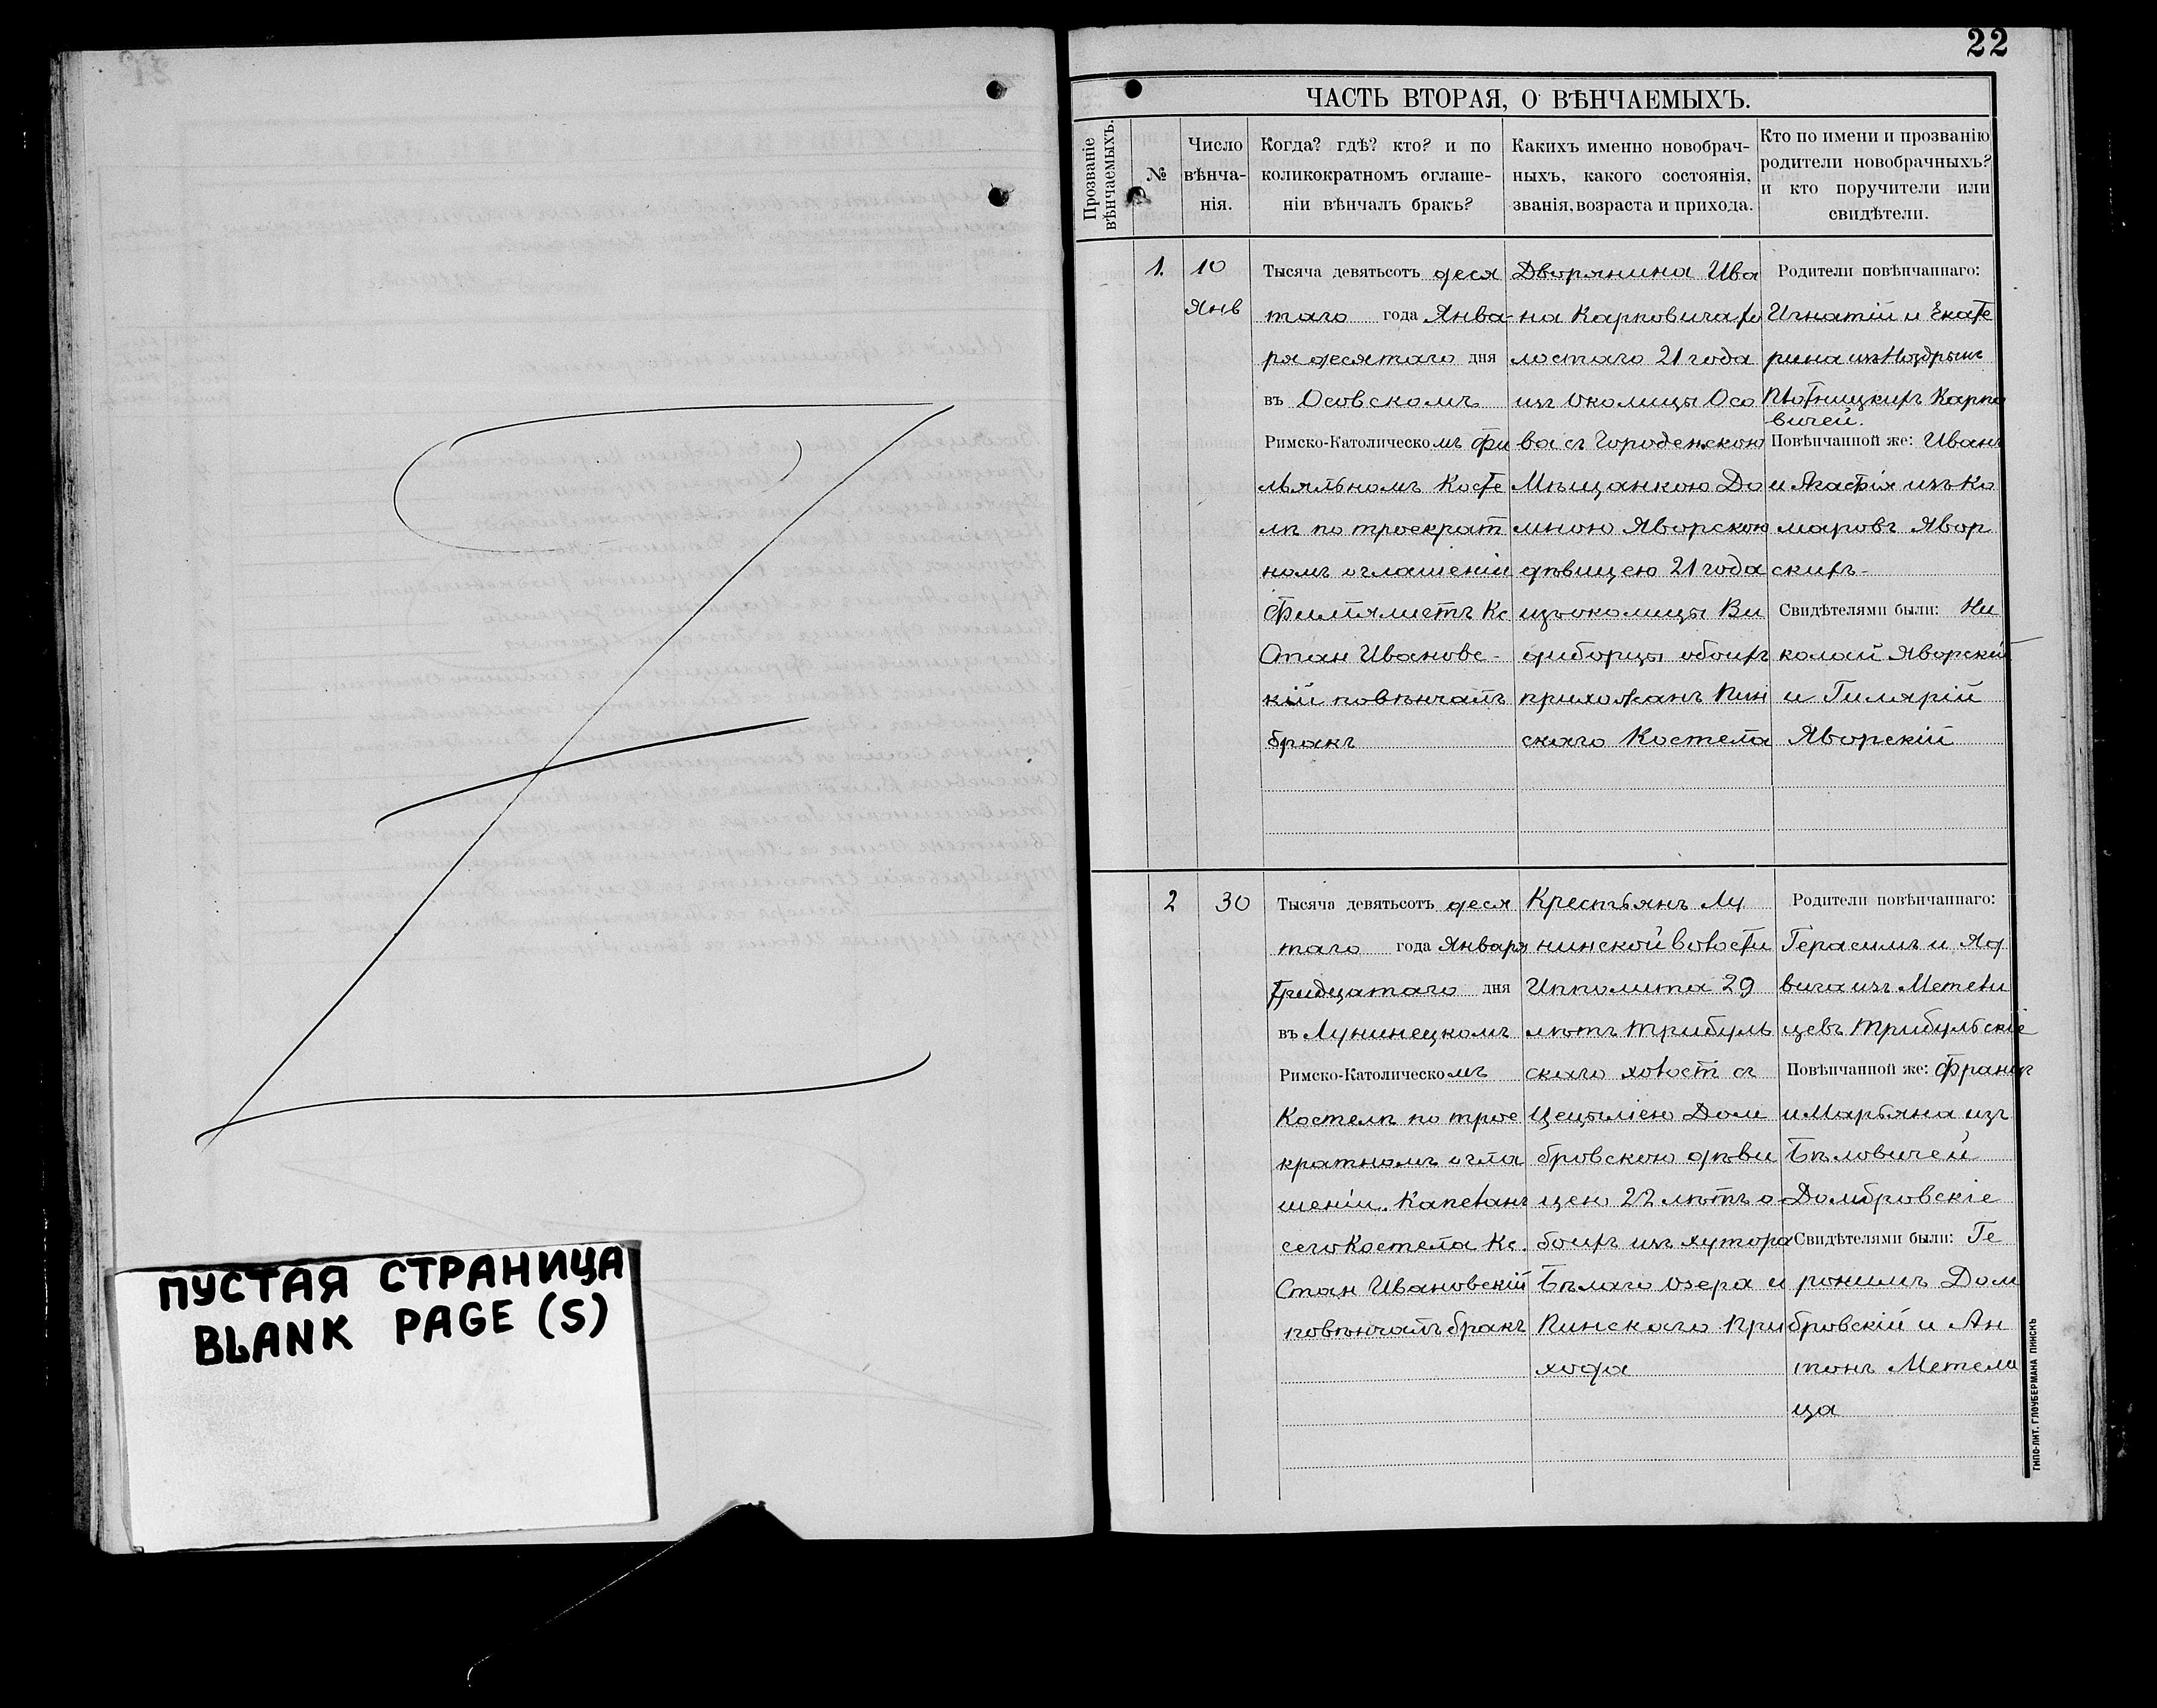 ПУСТАЯ СТРАНИЦА
BLANK PAGE (S)
22
ЧАСТЬ ВТОРАЯ, О ВѢНЧАЕМЫХЪ.
Прозваніе
вѣнчаемыхъ.
№
Число
вѣнча-
нія.
Когда? гдѣ? кто? и по
коликократномъ оглаше-
ніи вѣнчалъ бракъ?
Какихъ именно новобрач-
ныхъ, какого состоянія,
званія, возраста и прихода.
Кто по имени и прозванію
родители новобрачныхъ?
и кто поручители или
свидѣтели.
1.
10
Янв
Тысяча девятьсотъ деся
таго года Янва-
ря десятаго дня
въ Осовскомъ
Римско-Католическомъ фи
льяльномъ косте
лѣ по троекрат
номъ оглашеніи
Филіялистъ Кс
Стан Ивановс-
кій повѣнчалъ
бракъ
Дворянина Ива
на Карповича хо
лостаго 21 года
изъ околицы Осо
ва съ Городенскою
Мѣщанкою До
мною Яворскою
дѣвицею 21 года
изъ околицы Ви
обоихъ
прихожанъ Пин
скаго Костела
Родители повѣнчаннаго:
Игнатій и Екате
рина изъ
Плотницкихъ Карпо
вичей.
Повѣнчанной же: Иванъ
и изъ Ко
маровъ Явор
скихъ-
Свидѣтелями были: Ни
колай Яворскій
и Гилярій
Яворскій
2
30
Тысяча девятьсотъ деся
таго года Января
Тридцатаго дня
въ Лунинецкомъ
Римско-Католическомъ
Костелѣ по трое
кратномъ огла
шеніи. Капеланъ
сего Костела Кс.
Стан Ивановскій
повѣнчалъ бракъ
Крестьянъ Лу
нинской волости
Ипполита 29
лѣтъ Трибуль
скаго холост съ
Цецыліею Дом
бровскою дѣви
цею 22 лѣтъ о-
боихъ изъ хутора
Бѣлаго озера и
Пинскаго При
хода
Родители повѣнчаннаго:
Герасимъ и Яд
вига изъ Метели
цевъ Трибульскіе
Повѣнчанной же: Францъ
и Марьяна изъ
Бѣловичей
Домбровскіе
Свидѣтелями были: Ге
ронимъ Дом
бровскій и Ан
тонъ Метели
ца
ТИПО-ЛИТ. ГЛОУБЕРМАНА ПИНСКЪ